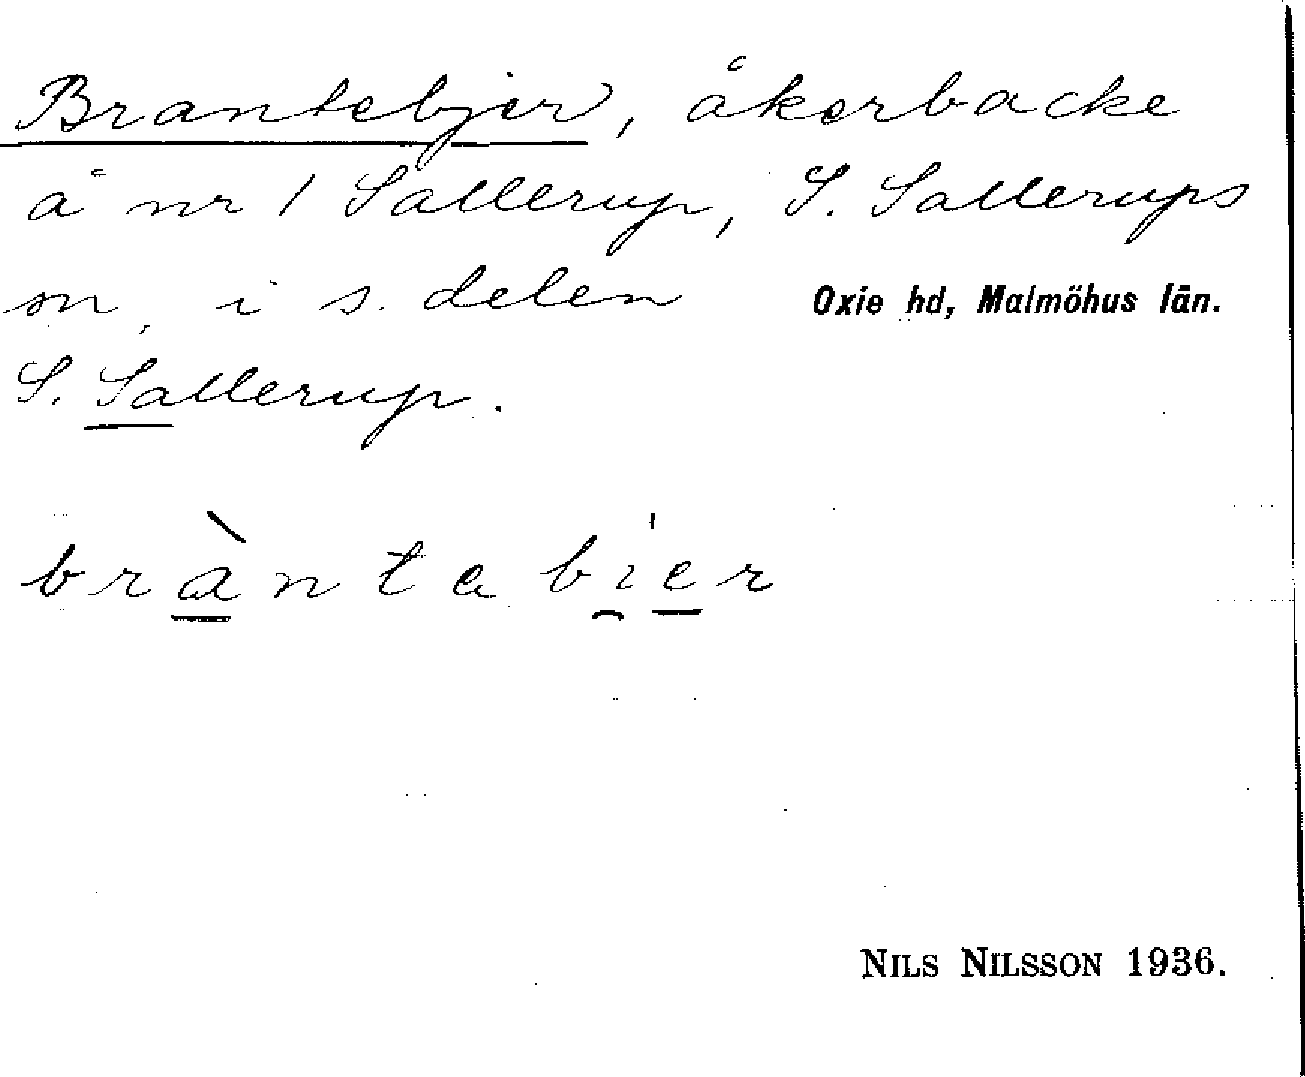 Brantebjer, åkerbacke
å nr 1 Sallerup, S. Sallerups
sn, i s. delen Oxie hd, Malmöhus län.
S. Sallerup.
bràntabi̯er
NILS NILSSON 1936.